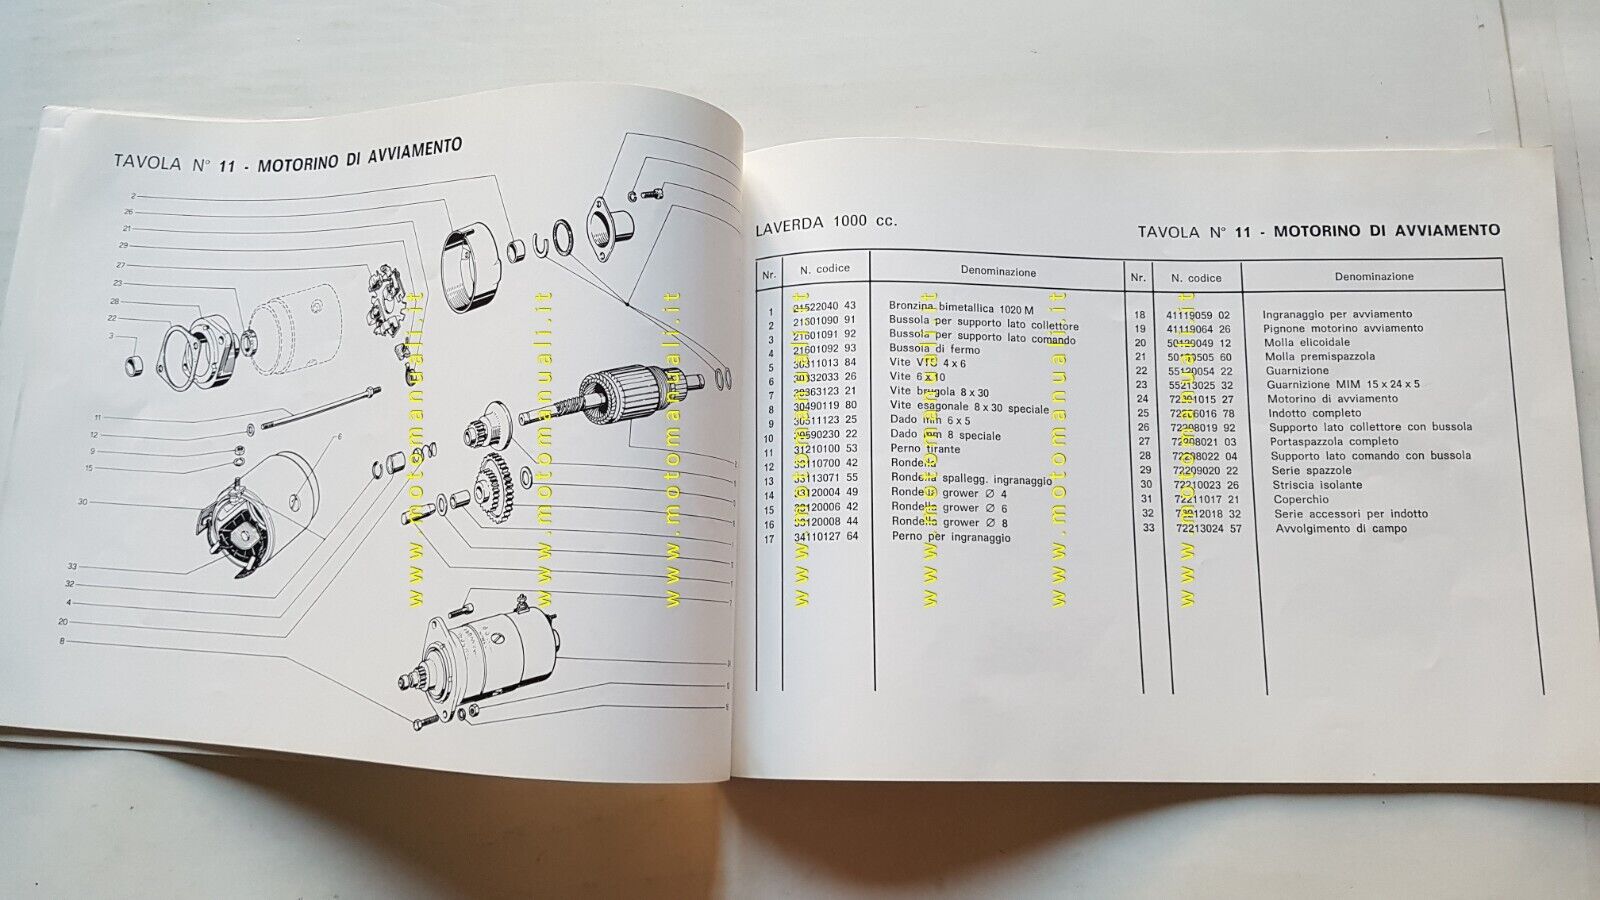 TAVOLA N° 11 - MOTORINO DI AVVIAMENTO
2
26
21
29
27
23
28
22
3
11
12
9
15
6
30
33
32
4
20
8
7
LAVERDA 1000 cc.
TAVOLA N° 11 - MOTORINO DI AVVIAMENTO
Nr. N. codice Denominazione
1 21522040 43 Bronzina bimetallica 1020 M
2 21601090 91 Bussola per supporto lato collettore
3 21601091 92 Bussola per supporto lato comando
4 21601092 93 Bussola di fermo
5 30311013 84 Vite VTC 4 x 6
6 30332033 26 Vite 6 x 10
7 30363123 21 Vite brugola 8 x 30
8 30490119 80 Vite esagonale 8 x 30 speciale
9 25 Dado mm 6 x 5
10 22 Dado mm 8 speciale
11 31210100 53 Perno tirante
12 33110700 42 Rondella
13 33113071 55 Rondella spallegg. ingranaggio
14 33120004 49 Rondella grower Ø 4
15 33120006 42 Rondella grower Ø 6
16 33120008 44 Rondella grower Ø 8
17 34110127 64 Perno per ingranaggio
Nr. N. codice Denominazione
18 41119059 02 Ingranaggio per avviamento
19 41119064 26 Pignone motorino avviamento
20 50129049 12 Molla elicoidale
21 60 Molla premispazzola
22 55120054 22 Guarnizione
23 55213025 32 Guarnizione MIM 15 x 24 x 5
24 72201015 27 Motorino di avviamento
25 72206016 78 Indotto completo
26 72208019 92 Supporto lato collettore con bussola
27 72208021 03 Portaspazzola completo
28 72208022 04 Supporto lato comando con bussola
29 72209020 22 Serie spazzole
30 72210023 26 Striscia isolante
31 72211017 21 Coperchio
32 72212018 32 Serie accessori per indotto
33 72213024 57 Avvolgimento di campo
www.motomanuali.it
www.motomanuali.it
www.motomanuali.it
www.motomanuali.it
www.motomanuali.it
www.motomanuali.it
www.motomanuali.it